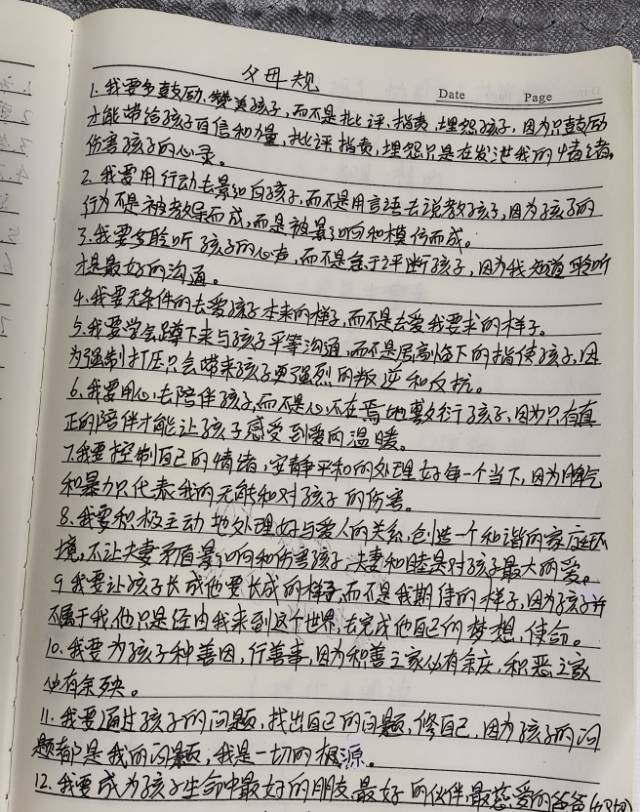 父母规
Date Page
1. 我要多鼓励、赞美孩子,而不是批评、指责、埋怨孩子,因为只鼓励
才能带给孩子自信和力量,批评指责,埋怨只是在发泄我的情绪,
伤害孩子的心灵。
2. 我要用行动去影响孩子,而不是用言语去说教孩子,因为孩子的
行为不是被教导而成,而是被影响和模仿而成。
3. 我要多聆听孩子的心声,而不是急于评断孩子,因为我知道聆听
才是最好的沟通。
4. 我要无条件的去爱孩子本来的样子,而不是去爱我要求的样子。
5. 我要学会蹲下来与孩子平等沟通,而不是居高临下的指使孩子,因
为强制打压只会带来孩子更强烈的叛逆和反抗。
6. 我要用心去陪伴孩子,而不是心不在焉地敷衍孩子,因为只有真
正的陪伴才能让孩子感受到爱的温暖。
7. 我要控制自己的情绪,安静平和的处理好每一个当下,因为脾气
和暴力只代表我的无能和对孩子的伤害。
8. 我要积极主动地处理好与爱人的关系,创造一个和谐的家庭环
境,不让夫妻矛盾影响和伤害孩子,夫妻和睦是对孩子最大的爱。
9 我要让孩子长成他要长成的样子,而不是我期待的样子,因为孩子并
不属于我,他只是经由我来到这个世界,去完成他自己的梦想,使命。
10. 我要为孩子种善因,行善事,因为积善之家必有余庆,积恶之家
必有余殃。
11. 我要通过孩子的问题,找出自己的问题,修自己,因为孩子的问
题都是我的问题,我是一切的根源。
12. 我要成为孩子生命中最好的朋友,最好的伙伴,最慈爱的爸爸